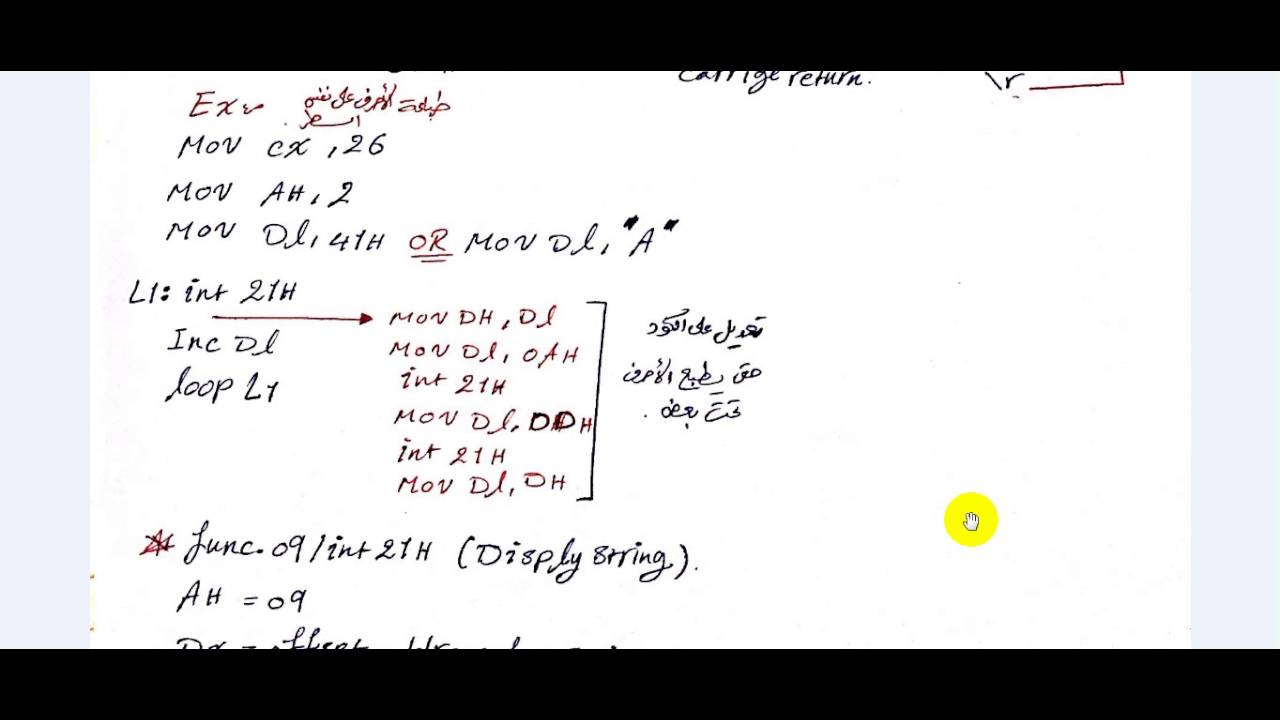 Carrige return.
\r
Ex~ طباعة الأحرف على نفس
السطر
MOV cx, 26
MOV AH, 2
MOV Dl, 41H OR MOV Dl, "A"
L1: int 21H
MOV DH, Dl
Inc Dl
MOV Dl, 0AH
loop L1
int 21H
MOV Dl, 0DH
int 21H
MOV Dl, DH
تعديل على الكود
حتى يطبع الأحرف
تحت بعض.
* func.09/int 21H (Disply string).
AH = 09
Dx = offset